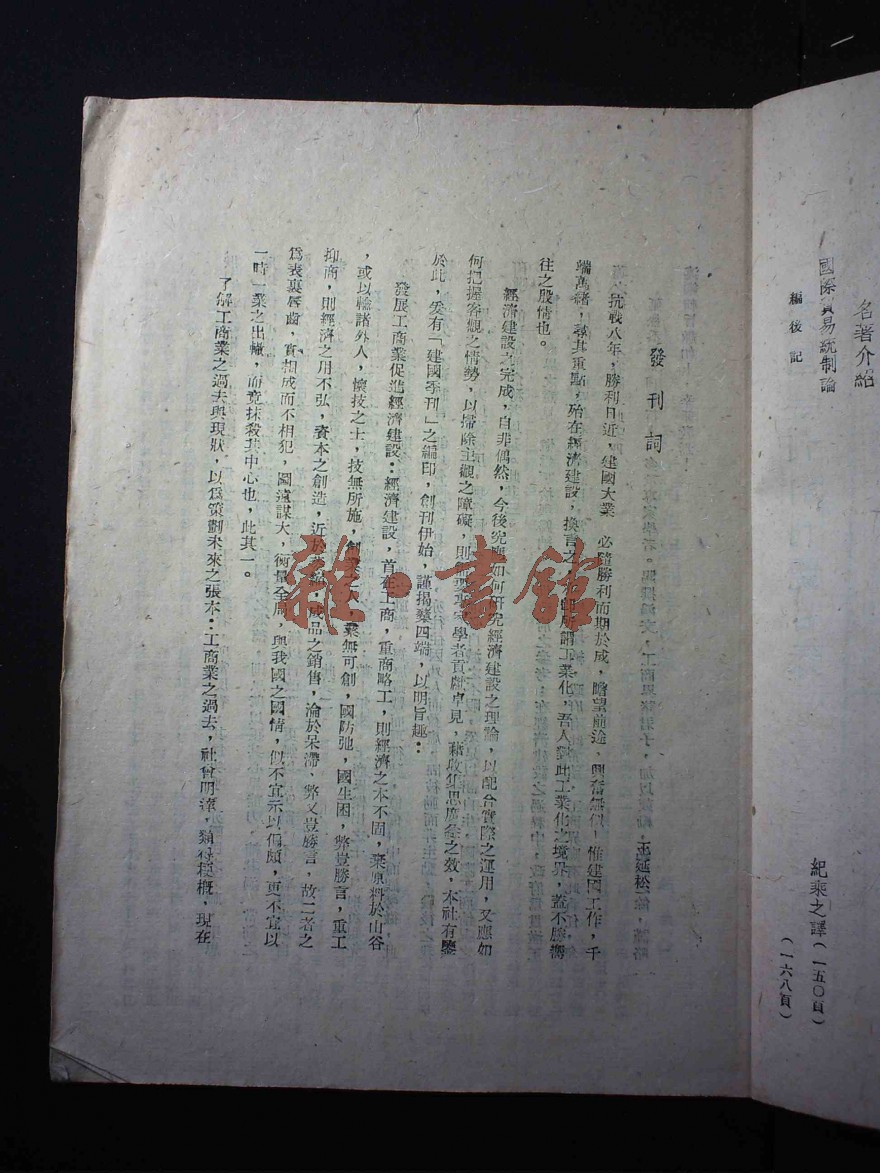 名著介紹
國際貿易統制論
紀乘之譯(一五〇頁)
編後記
(一六八頁)
發刊詞
王延松
抗戰八年,勝利日近,建國大業 必隨勝利而期於成,瞻望前途,興奮無似,惟建國工作,千
端萬緒,尋其重點,殆在經濟建設,換言之,亦即所謂工業化,吾人對此工業化之境界,蓋不勝嚮
往之殷情也。
經濟建設之完成,自非偶然,今後究應如何研究經濟建設之理論,以配合實際之運用,又應如
何把握客觀之情勢,以掃除主觀之障礙,則 專家學者貢獻卓見,藉收集思廣益之效,本社有鑒
於此,爰有「建國季刊」之編印,創刊伊始,謹揭櫫四端,以明旨趣:
發展工商業促進經濟建設:經濟建設,首在工商,重商略工,則經濟之本不固,棄原料於山谷
,或以輸諸外人,懷技之士,技無所施,創業之人,業無可創,國防弛,國生困,弊豈勝言,重工
抑商,則經濟之用不弘,資本之創造,近於 成品之銷售,淪於呆滯、弊又豈勝言,故二者之
爲表裏唇齒,實相成而不相犯,圖遠謀大,衡量全局,與我國之國情,似不宜示以偏頗,更不宜以
一時一業之出轍,而竟抹殺其中心也,此其一。
了解工商業之過去與現狀,以爲策劃未來之張本:工商業之過去,社會明達,類得梗概,現在
雜·書館